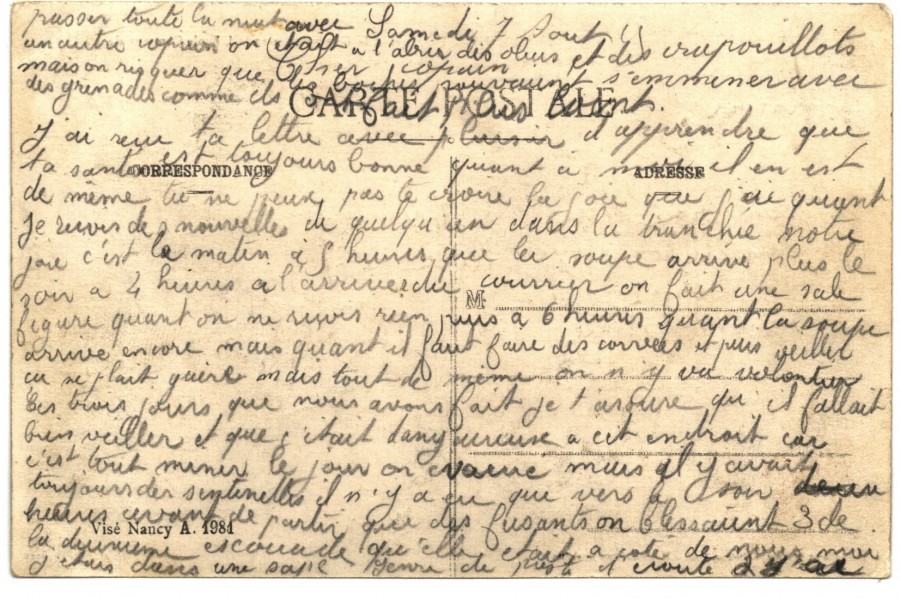 passer toute la nuit avec
un autre copain on était à l'abri des obus et des crapouillots
mais on risquer que les boches pouvaient s'emminer avec
des grenades comme ils
Samedi 7 Août
Cher copain
CARTE POSTALE
J'ai reçu ta lettre avec plaisir d'apprendre que
ta santé est toujours bonne quant a moi il en est
CORRESPONDANCE
ADRESSE
de même tu ne peux pas te croire la joie que j'ai quant
Je reçois des nouvelles de quelqu'un dans la tranchée notre
joie c'est le matin à 5 heures que la soupe arrive plus le
soir a 4 heures a l'arrivée du courrier on fait une sale
M
figure quant on ne reçois rien puis à 6 heures quant la soupe
arrive encore mais quant il faut faire des corvées et puis veiller
ça se plait guère mais tout de même on n'y va volontier
Les trois jours que nous avons fait je t'assure qu'il fallait
bien veiller et que c'était dangeureuse a cet endroit car
c'est tout miner le jour on mais il y avait
toujours des sentinelles il n'y a eu que vers à soir
heures avant de partir que des fusants on blessaient 3 de
Visé Nancy A. 1984
la deuxieme escouade qu'elle était a coté de nous moi
j'étais dans une sape genre de